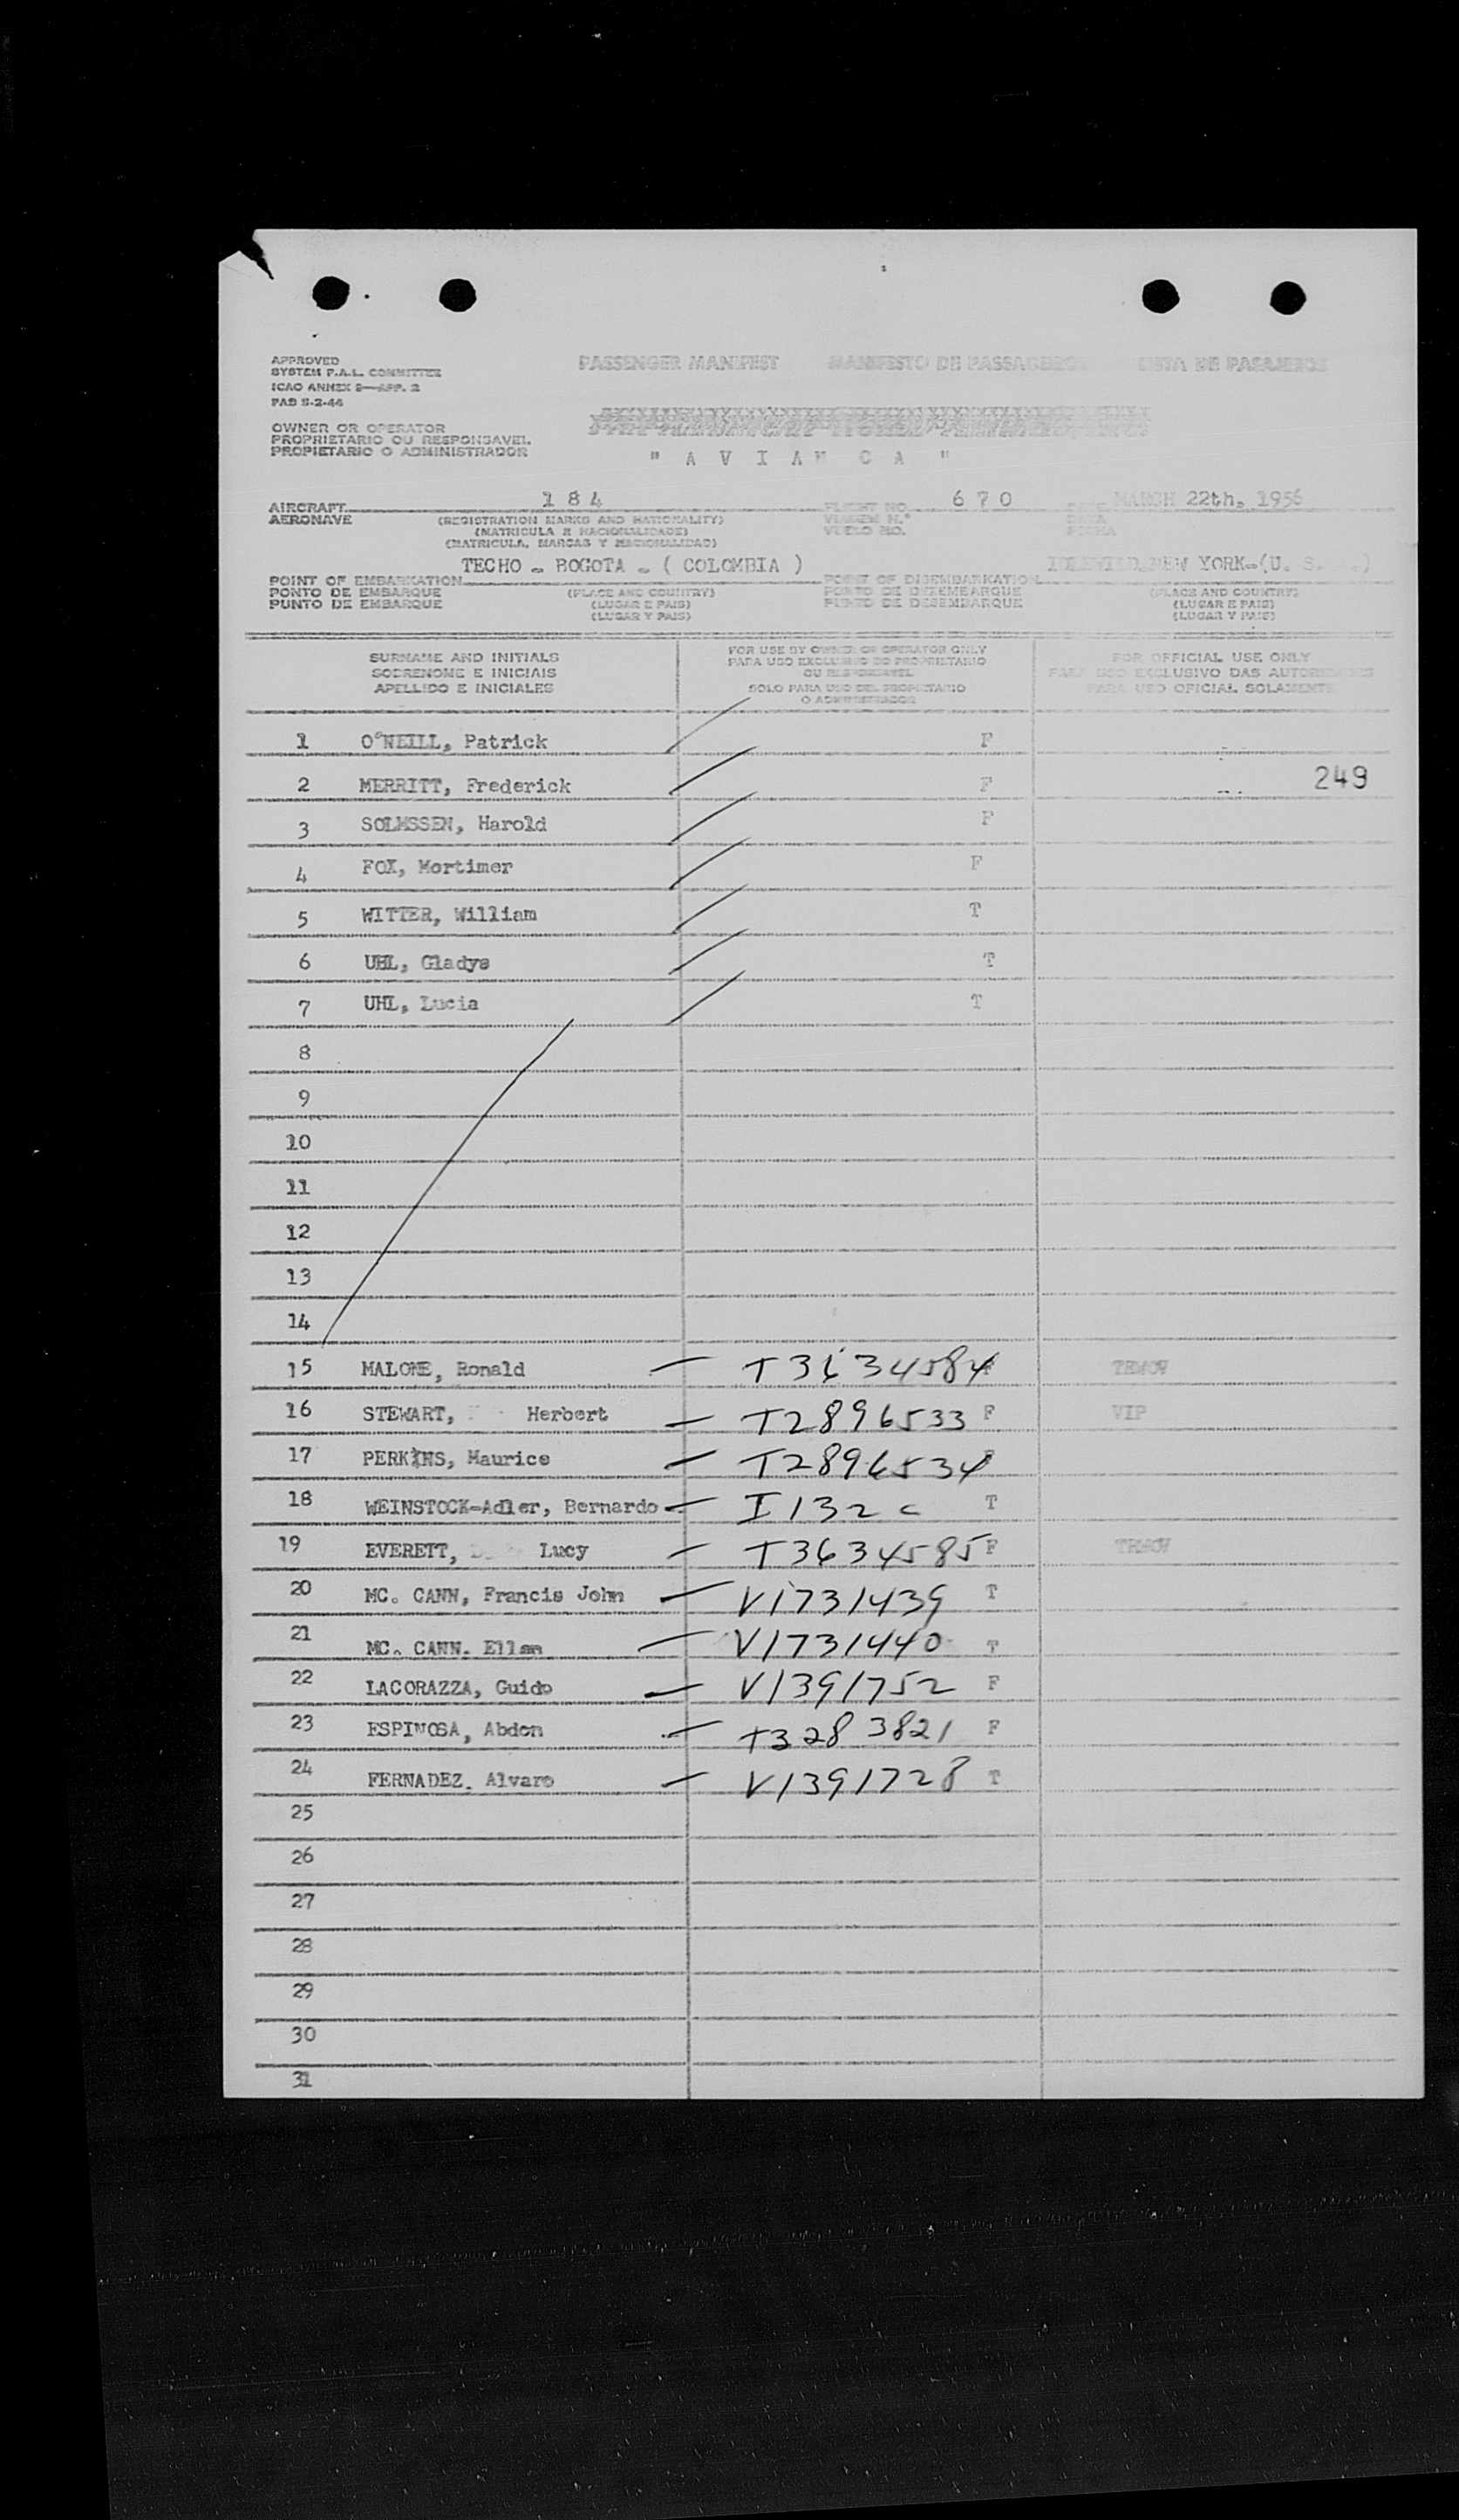 APPROVED
SYSTEM P.A.L. COMMITTEE
ICAO ANNEX 9—APP. 2
PAD 8-2-44
PASSENGER MANIFEST MANIFESTO DE PASSAGEIROS LISTA DE PASAJEROS
OWNER OR OPERATOR
PROPRIETARIO OU RESPONSAVEL
PROPIETARIO O ADMINISTRADOR
" A V I A N C A "
AIRCRAFT 184 FLIGHT NO. 670 MARCH 22th, 1956
AERONAVE (REGISTRATION MARKS AND NATIONALITY) VIAGEM N.º DATA
(MATRICULA E NACIONALIDADE) VUELO NO. FECHA
(MATRICULA, MARCAS Y NACIONALIDAD)
TECHO - BOGOTA - ( COLOMBIA ) IDLEWILD NEW YORK-(U. S. .)
POINT OF EMBARKATION (PLACE AND COUNTRY) POINT OF DISEMBARKATION (PLACE AND COUNTRY)
PONTO DE EMBARQUE (LUGAR E PAIS) PONTO DE DESEMBARQUE (LUGAR E PAIS)
PUNTO DE EMBARQUE (LUGAR Y PAIS) PUNTO DE DESEMBARQUE (LUGAR Y PAIS)
SURNAME AND INITIALS FOR USE BY OWNER OR OPERATOR ONLY FOR OFFICIAL USE ONLY
SOBRENOME E INICIAIS PARA USO EXCLUSIVO DO PROPRIETARIO OU RESPONSAVEL PARA USO EXCLUSIVO DAS AUTORIDADES
APELLIDO E INICIALES SOLO PARA USO DEL PROPIETARIO O ADMINISTRADOR PARA USO OFICIAL SOLAMENTE
1 O'NEILL, Patrick F
2 MERRITT, Frederick F 249
3 SOLMSSEN, Harold F
4 FOX, Mortimer F
5 WITTER, William T
6 UHL, Gladys T
7 UHL, Lucia T
8
9
10
11
12
13
14
15 MALONE, Ronald — T3634584
16 STEWART, Herbert — T2896533 F VIP
17 PERKINS, Maurice — T2896534
18 WEINSTOCK-Adler, Bernardo — I132c T
19 EVERETT, Lucy — T3634585 F
20 MC. CANN, Francis John — V1731439 T
21 MC. CANN. Ellen — V1731440 T
22 LACORAZZA, Guido — V1391752 F
23 ESPINOSA, Abdon — T3283821 F
24 FERNADEZ. Alvaro — V1391728 T
25
26
27
28
29
30
31